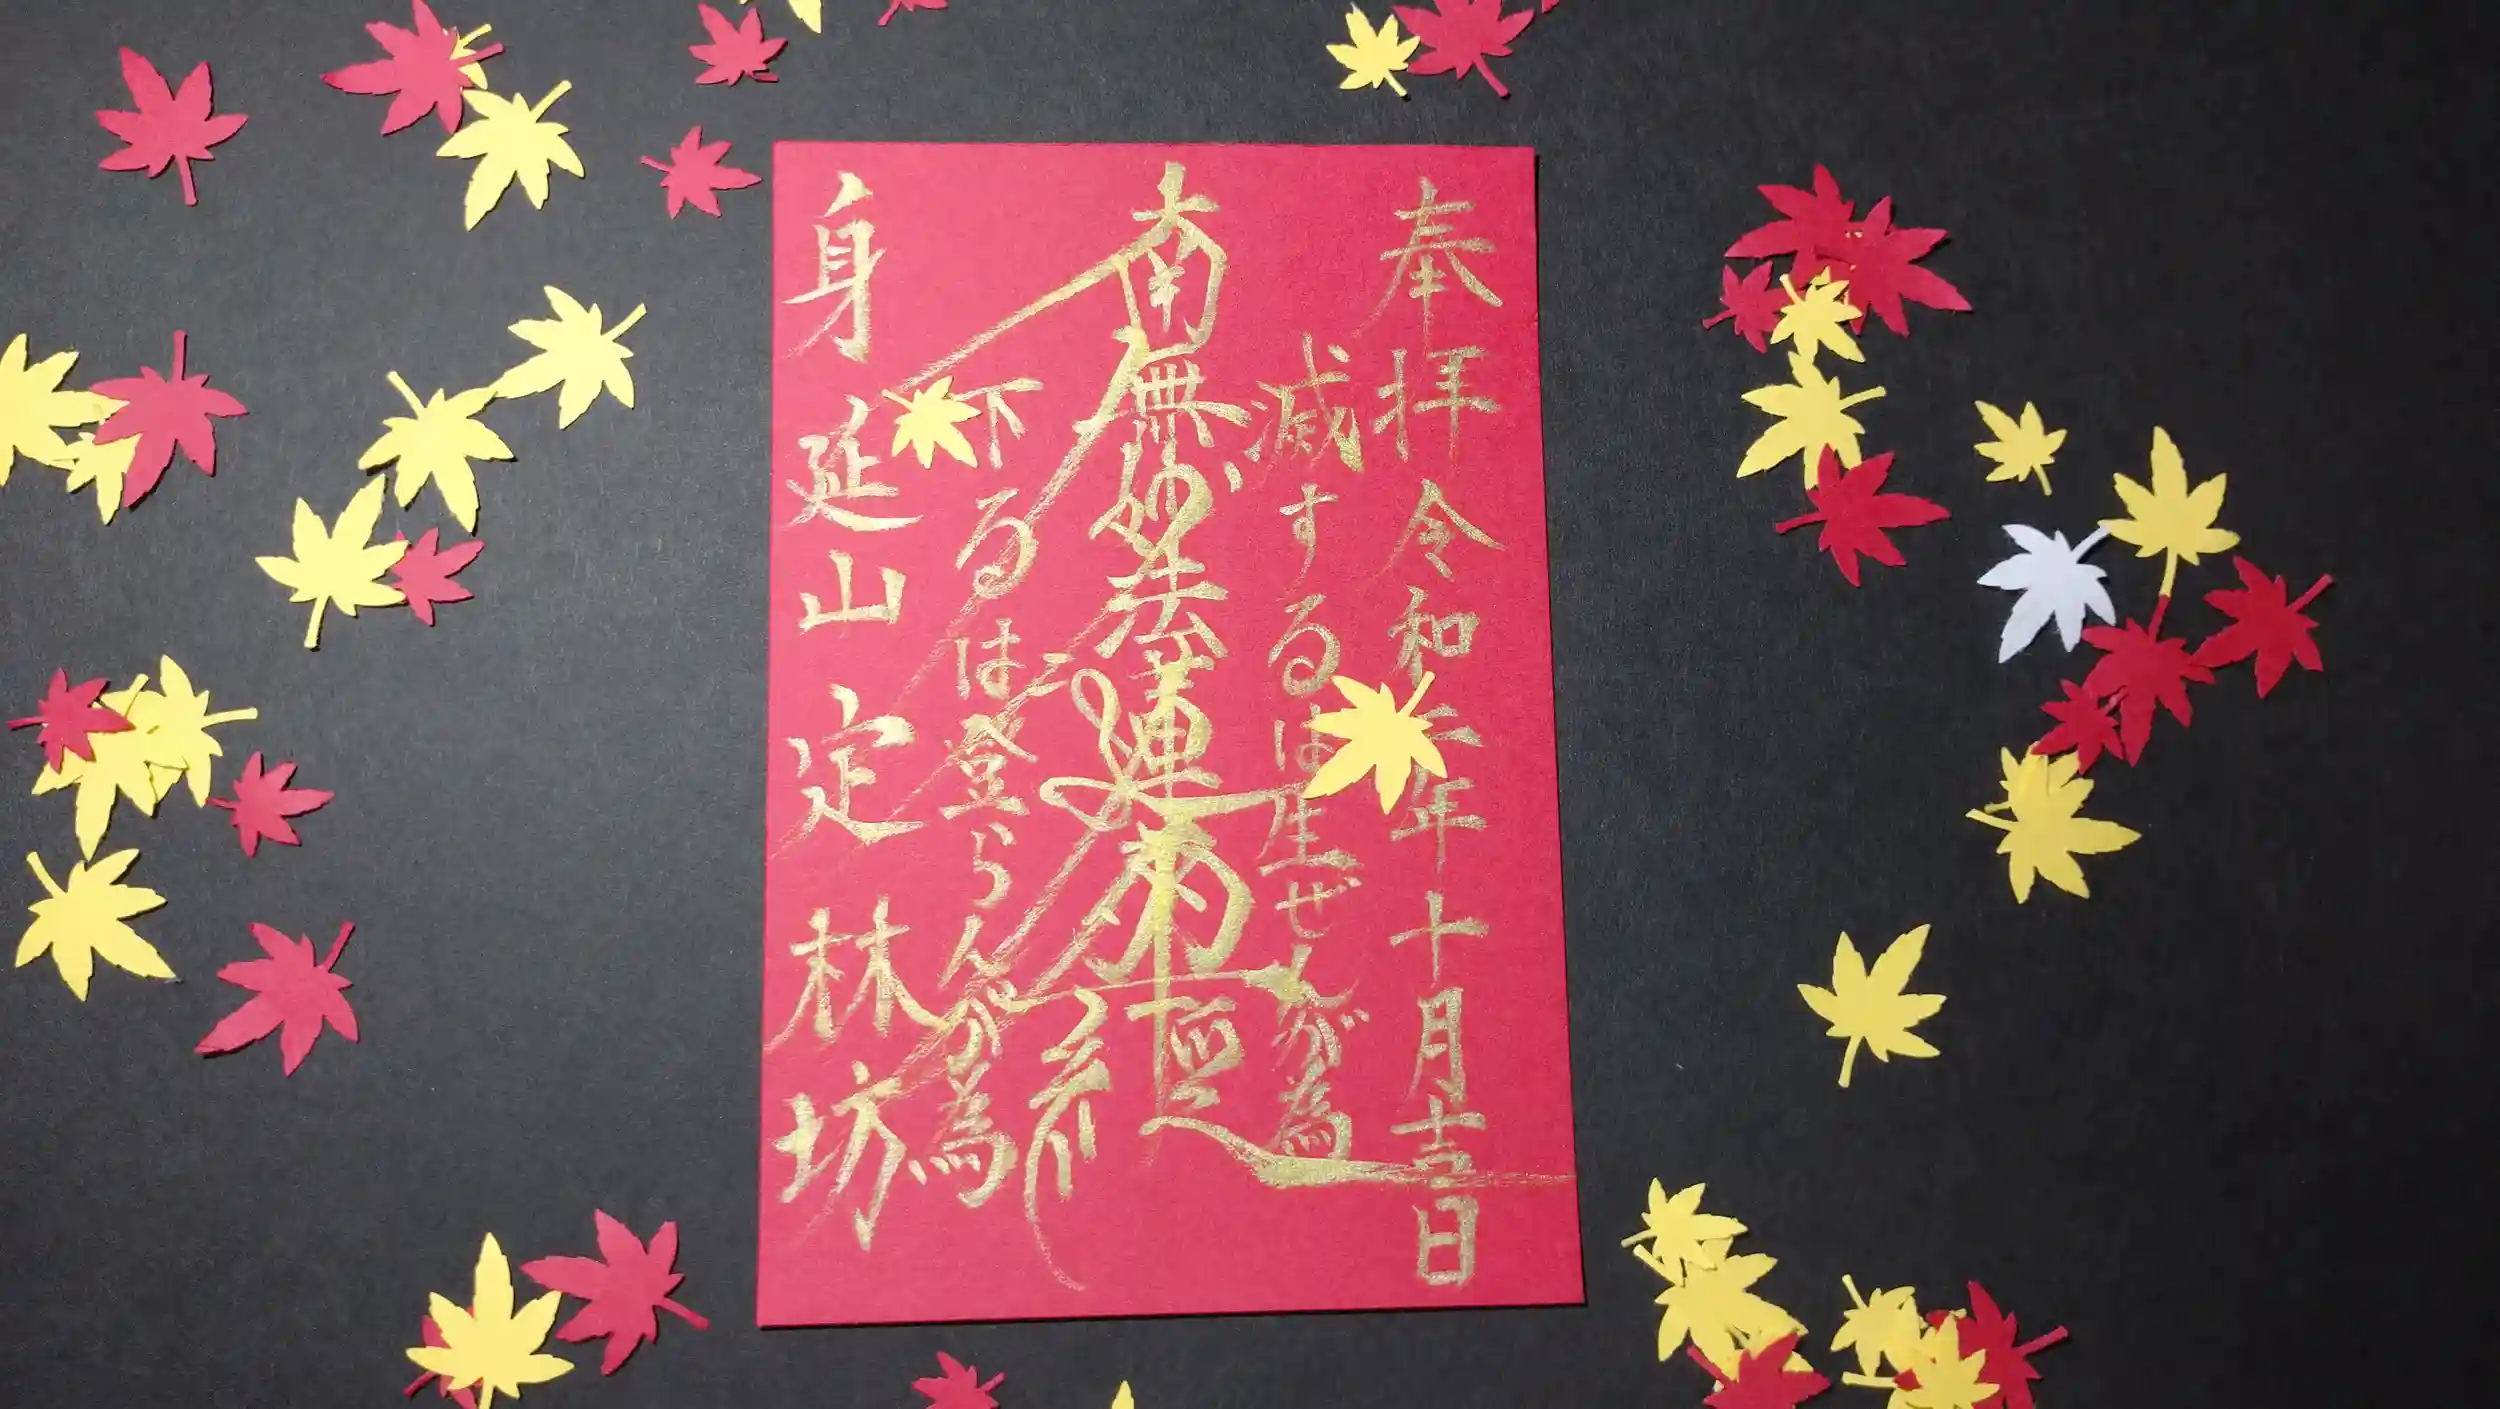 奉拝 令和二年十月吉日
滅するは生ぜんが為
南無妙法蓮華経
下るは登らんが為
身延山定林坊